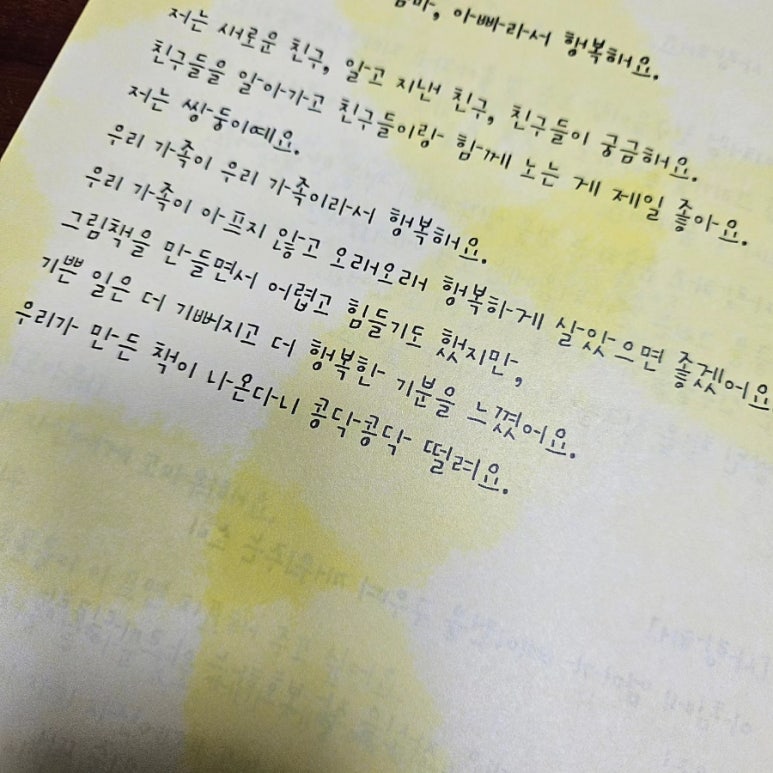 엄마, 아빠라서 행복해요.
저는 새로운 친구, 알고 지낸 친구, 친구들이 궁금해요.
친구들을 알아가고 친구들이랑 함께 노는 게 제일 좋아요.
저는 쌍둥이예요.
우리 가족이 우리 가족이라서 행복해요.
우리 가족이 아프지 않고 오래오래 행복하게 살았으면 좋겠어요
그림책을 만들면서 어렵고 힘들기도 했지만,
기쁜 일은 더 기뻐지고 더 행복한 기분을 느꼈어요.
우리가 만든 책이 나온다니 콩닥콩닥 떨려요.